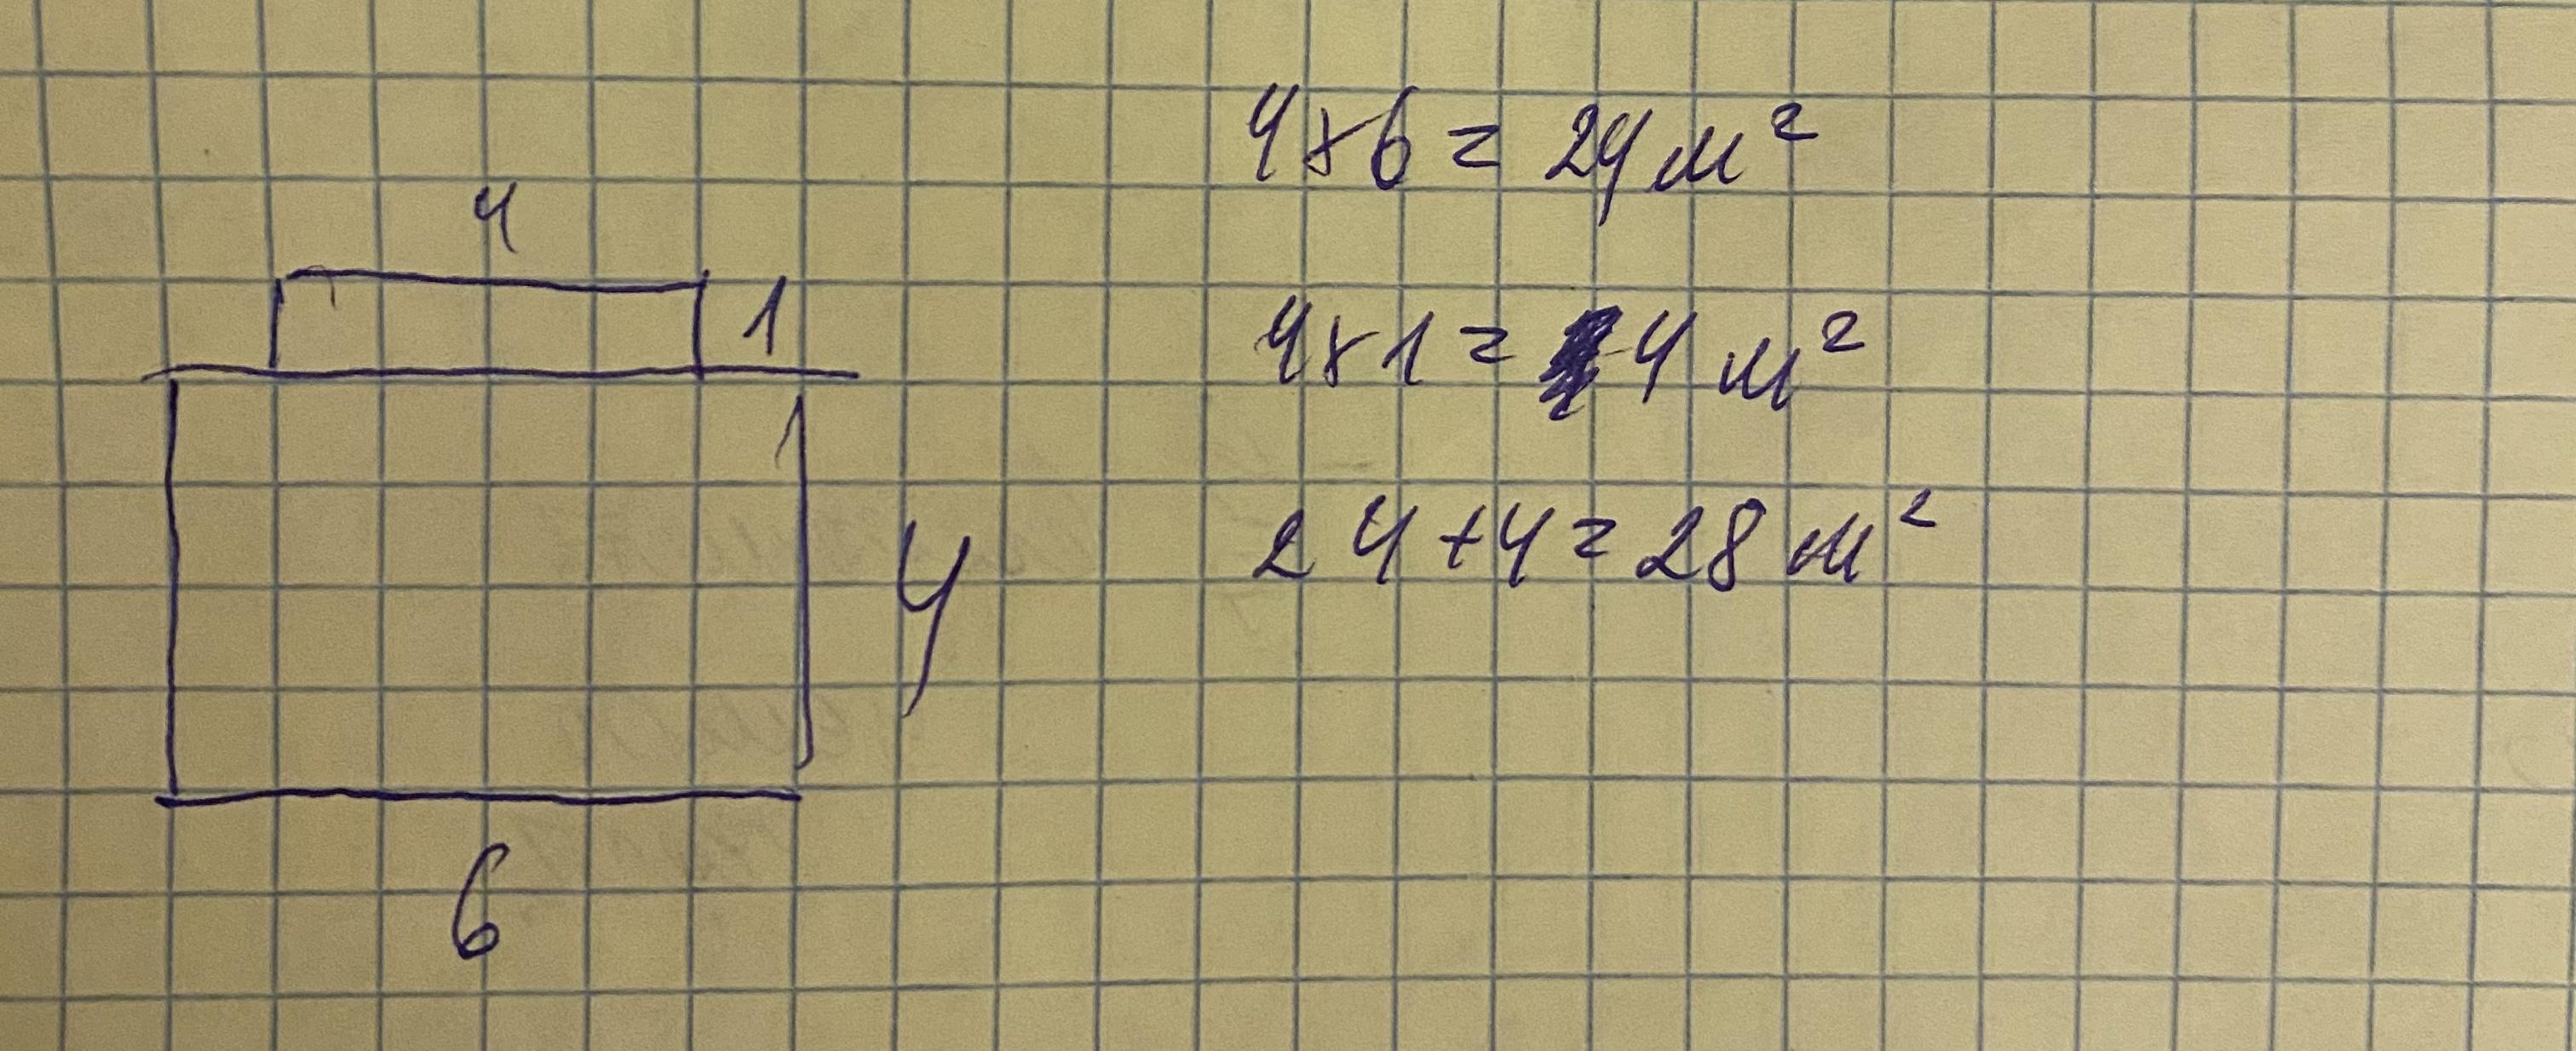 4
1
4
6
4×6=24 м²
4×1=4 м²
24+4=28 м²